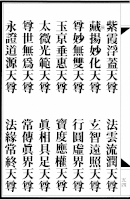 紫霞浮蓋天尊　法雲流潤天尊
藏揚妙化天尊　玄智遠照天尊
尊妙無雙天尊　行圓虛界天尊
玉京垂惠天尊　寶度應權天尊
太微光範天尊　真相具足天尊
尊世無為天尊　常傳真界天尊
永證道源天尊　法緣常終天尊